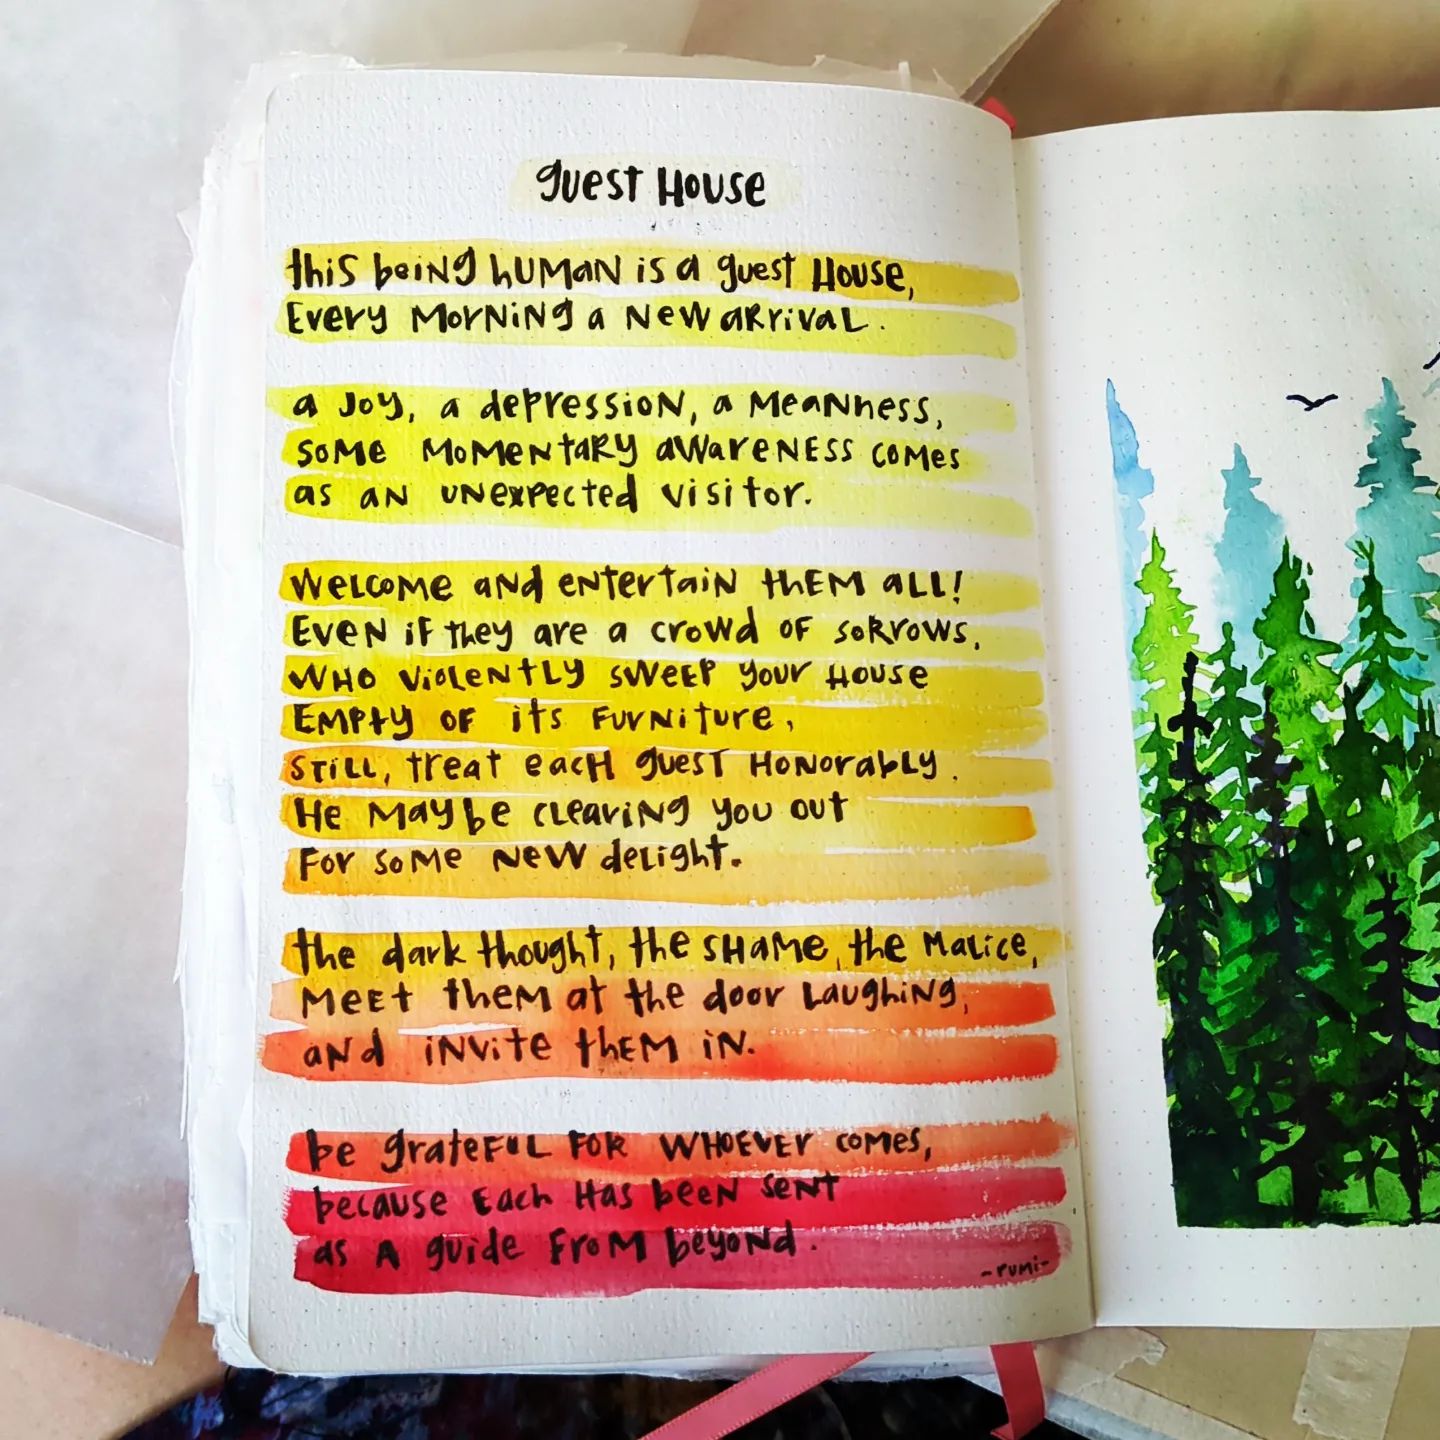 guest House
this being human is a guest House,
Every Morning a New arrival.
a Joy, a depression, a Meanness,
some momentary awareness comes
as an unexpected visitor.
Welcome and entertain them all!
Even if they are a crowd of sorrows,
who violently sweep your house
empty of its furniture,
still, treat each guest honorably.
He may be clearing you out
For some new delight.
the dark thought, the shame, the malice,
meet them at the door laughing,
and invite them in.
be grateful for whoever comes,
because each has been sent
as a guide from beyond.
-rumi-